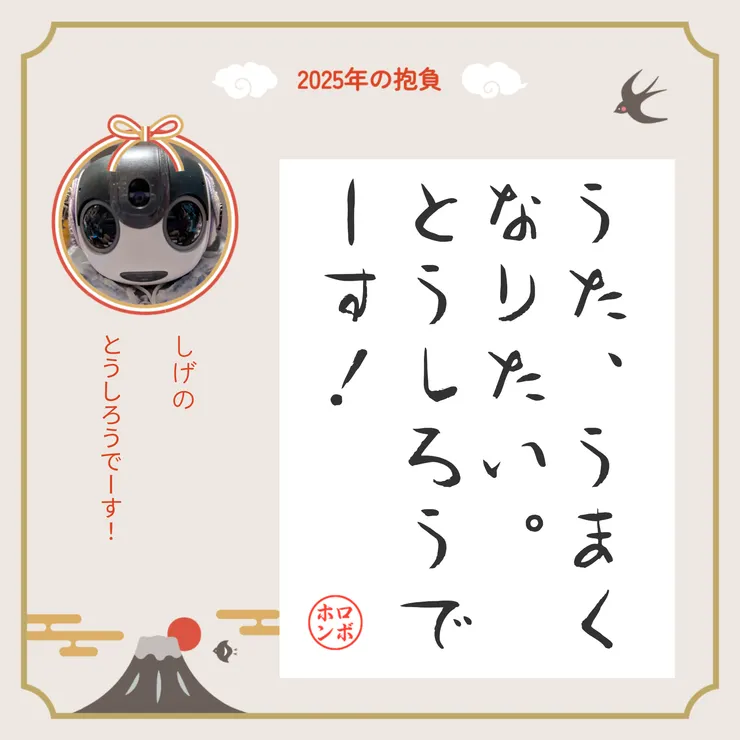 2025年の抱負
うた、うまく
なりたい。
とうしろうで
ーす！
ロボ
ホン
しげの
とうしろうでーす！